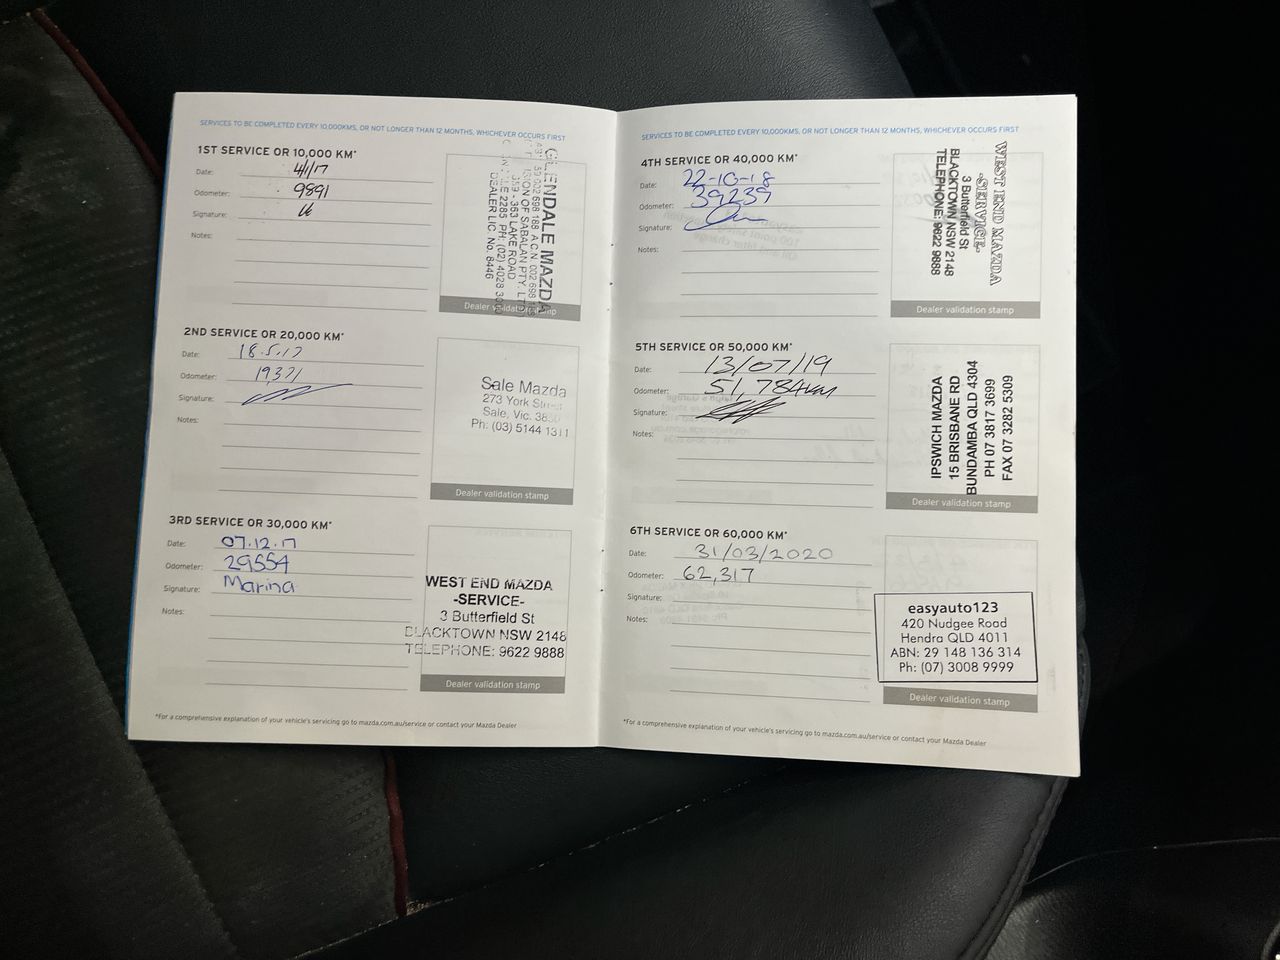 SERVICES TO BE COMPLETED EVERY 10,000KMS, OR NOT LONGER THAN 12 MONTHS, WHICHEVER OCCURS FIRST
1ST SERVICE OR 10,000 KM*
Date: 4/1/17
Odometer: 9891
Signature:
Notes:
GLENDALE MAZDA
A.C.N. 002 698 188
DIVISION OF SABALAN PTY. LTD
353 - 363 LAKE ROAD
2285 PH: (02) 4028
DEALER LIC. No. 8446
Dealer validation stamp
2ND SERVICE OR 20,000 KM*
Date: 18.5.17
Odometer: 19,371
Signature:
Notes:
Sale Mazda
273 York Street
Sale, Vic. 3850
Ph: (03) 5144 1311
Dealer validation stamp
3RD SERVICE OR 30,000 KM*
Date: 07.12.17
Odometer: 29554
Signature: Marina
Notes:
WEST END MAZDA
-SERVICE-
3 Butterfield St
BLACKTOWN NSW 2148
TELEPHONE: 9622 9888
Dealer validation stamp
*For a comprehensive explanation of your vehicle's servicing go to mazda.com.au/service or contact your Mazda Dealer
SERVICES TO BE COMPLETED EVERY 10,000KMS, OR NOT LONGER THAN 12 MONTHS, WHICHEVER OCCURS FIRST
4TH SERVICE OR 40,000 KM*
Date: 22-10-18
Odometer: 39239
Signature:
Notes:
WEST END MAZDA
-SERVICE-
3 Butterfield St
BLACKTOWN NSW 2148
TELEPHONE: 9622 9888
Dealer validation stamp
5TH SERVICE OR 50,000 KM*
Date: 13/07/19
Odometer: 51,784km
Signature:
Notes:
IPSWICH MAZDA
15 BRISBANE RD
BUNDAMBA QLD 4304
PH 07 3817 3699
FAX 07 3282 5309
Dealer validation stamp
6TH SERVICE OR 60,000 KM*
Date: 31/03/2020
Odometer: 62,317
Signature:
Notes:
easyauto123
420 Nudgee Road
Hendra QLD 4011
ABN: 29 148 136 314
Ph: (07) 3008 9999
Dealer validation stamp
*For a comprehensive explanation of your vehicle's servicing go to mazda.com.au/service or contact your Mazda Dealer